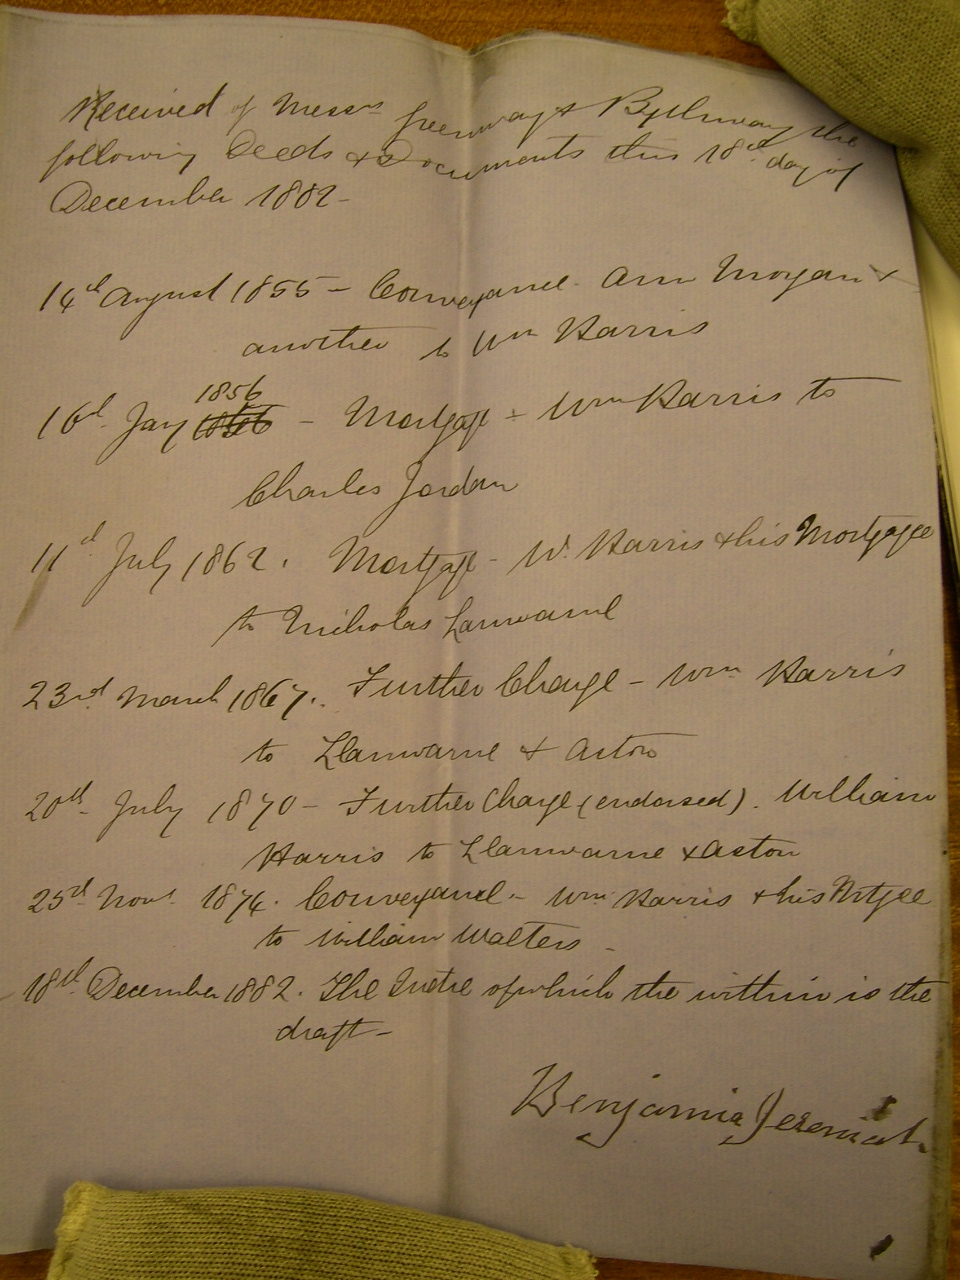 Received of Messrs Greenway & Bytheway the
following Deeds & Documents this 18th day of
December 1882-
14th August 1855 - Conveyance. Ann Morgan &
another to Wm Harris
1856
16th Jany - Mortgage - Wm Harris to
Charles Jordan
11th July 1862. Mortgage - W. Harris & his Mortgagee
to Nicholas Lanwarne
23rd March 1867. Further Charge - Wm Harris
to Llanwarne & Aston
20th July 1870 - Further Charge (endorsed). William
Harris to Llanwarne & Aston
25th Novr 1874. Conveyance - Wm Harris & his Mtgee
to William Walters -
18th December 1882. The Indre of which the within is the
draft -
Benjamin Jeremiah.